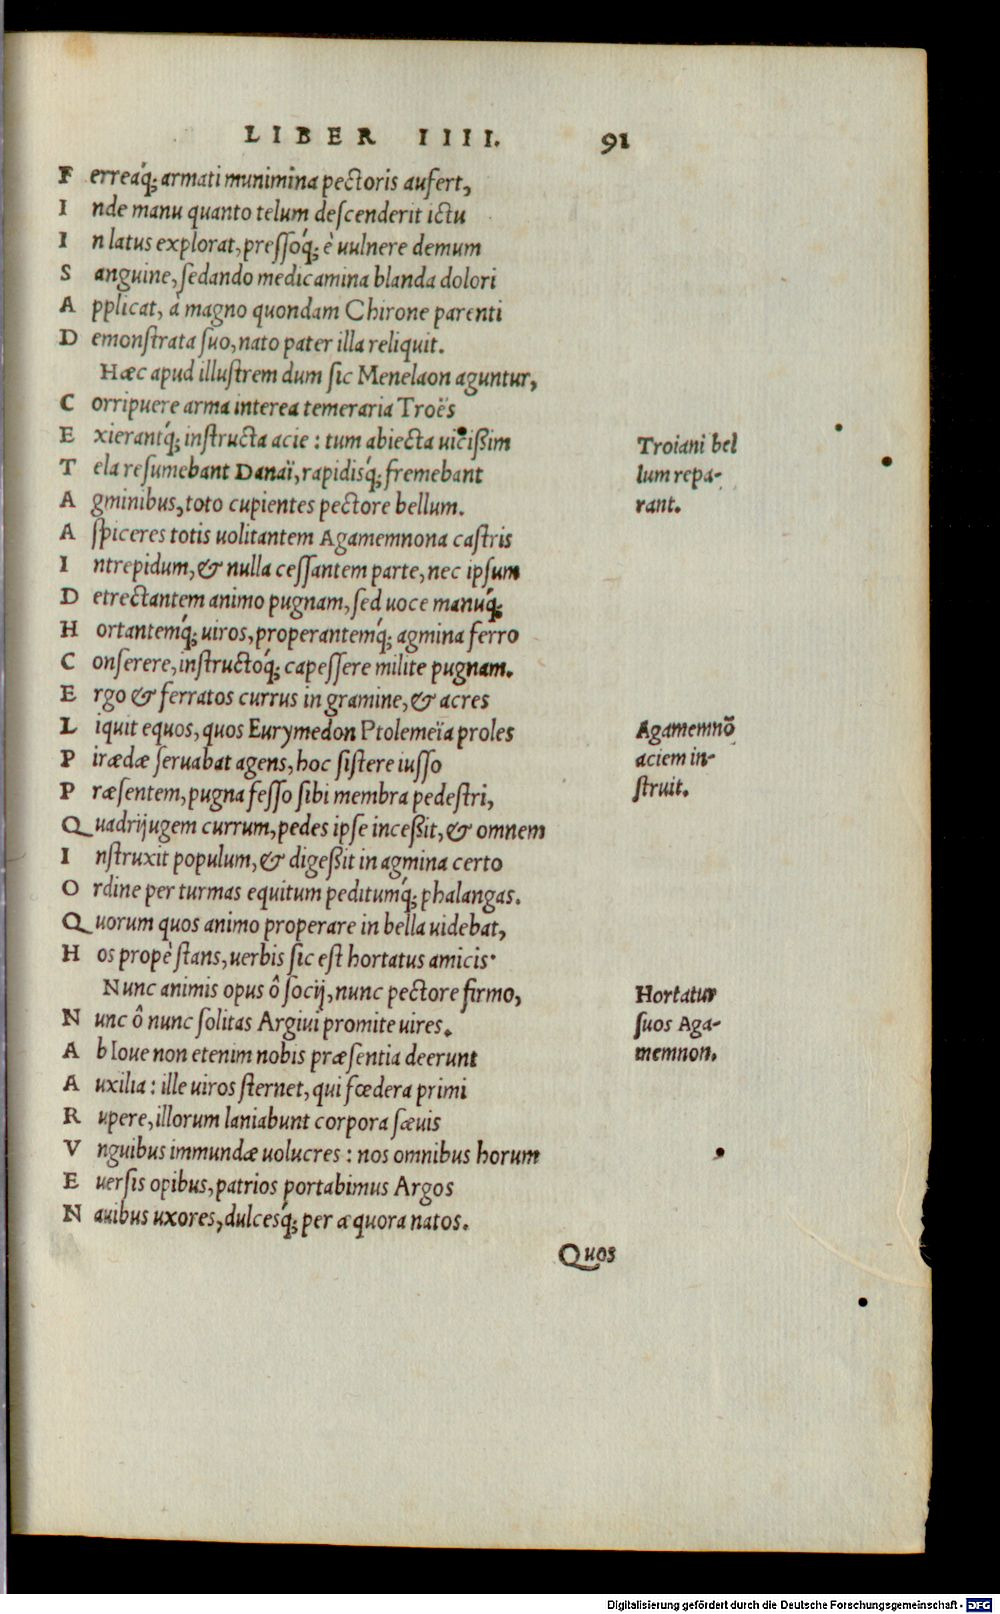 LIBER IIII. 91
F erreáq; armati munimina pectoris aufert,
I nde manu quanto telum descenderit ictu
I n latus explorat, pressóq; è uulnere demum
S anguine, sedando medicamina blanda dolori
A pplicat, à magno quondam Chirone parenti
D emonstrata suo, nato pater illa reliquit.
Hæc apud illustrem dum sic Menelaon aguntur,
C orripuere arma interea temeraria Troës
E xierantq́; instructa acie : tum abiecta uicißim
Troiani bel
T ela resumebant Danaï, rapidisq́; fremebant
lum repa-
A gminibus, toto cupientes pectore bellum.
rant.
A spiceres totis uolitantem Agamemnona castris
I ntrepidum, & nulla cessantem parte, nec ipsum
D etrectantem animo pugnam, sed uoce manuq́;
H ortantemq́; uiros, properantemq́; agmina ferro
C onserere, instructoq́; capessere milite pugnam.
E rgo & ferratos currus in gramine, & acres
L iquit equos, quos Eurymedon Ptolemeïa proles
Agamemnõ
P irædæ seruabat agens, hoc sistere iusso
aciem in-
P ræsentem, pugna fesso sibi membra pedestri,
struit.
Q uadrijugem currum, pedes ipse inceßit, & omnem
I nstruxit populum, & digeßit in agmina certo
O rdine per turmas equitum peditumq́; phalangas.
Q uorum quos animo properare in bella uidebat,
H os propè stans, uerbis sic est hortatus amicis·
Nunc animis opus ô socij, nunc pectore firmo,
Hortatur
N unc ô nunc solitas Argiui promite uires.
suos Aga-
A b Ioue non etenim nobis præsentia deerunt
memnon.
A uxilia : ille uiros sternet, qui fœdera primi
R upere, illorum laniabunt corpora sæuis
V nguibus immundæ uolucres : nos omnibus horum
E uersis opibus, patrios portabimus Argos
N auibus uxores, dulcesq́; per æquora natos.
Quos
Digitalisierung gefördert durch die Deutsche Forschungsgemeinschaft - DFG